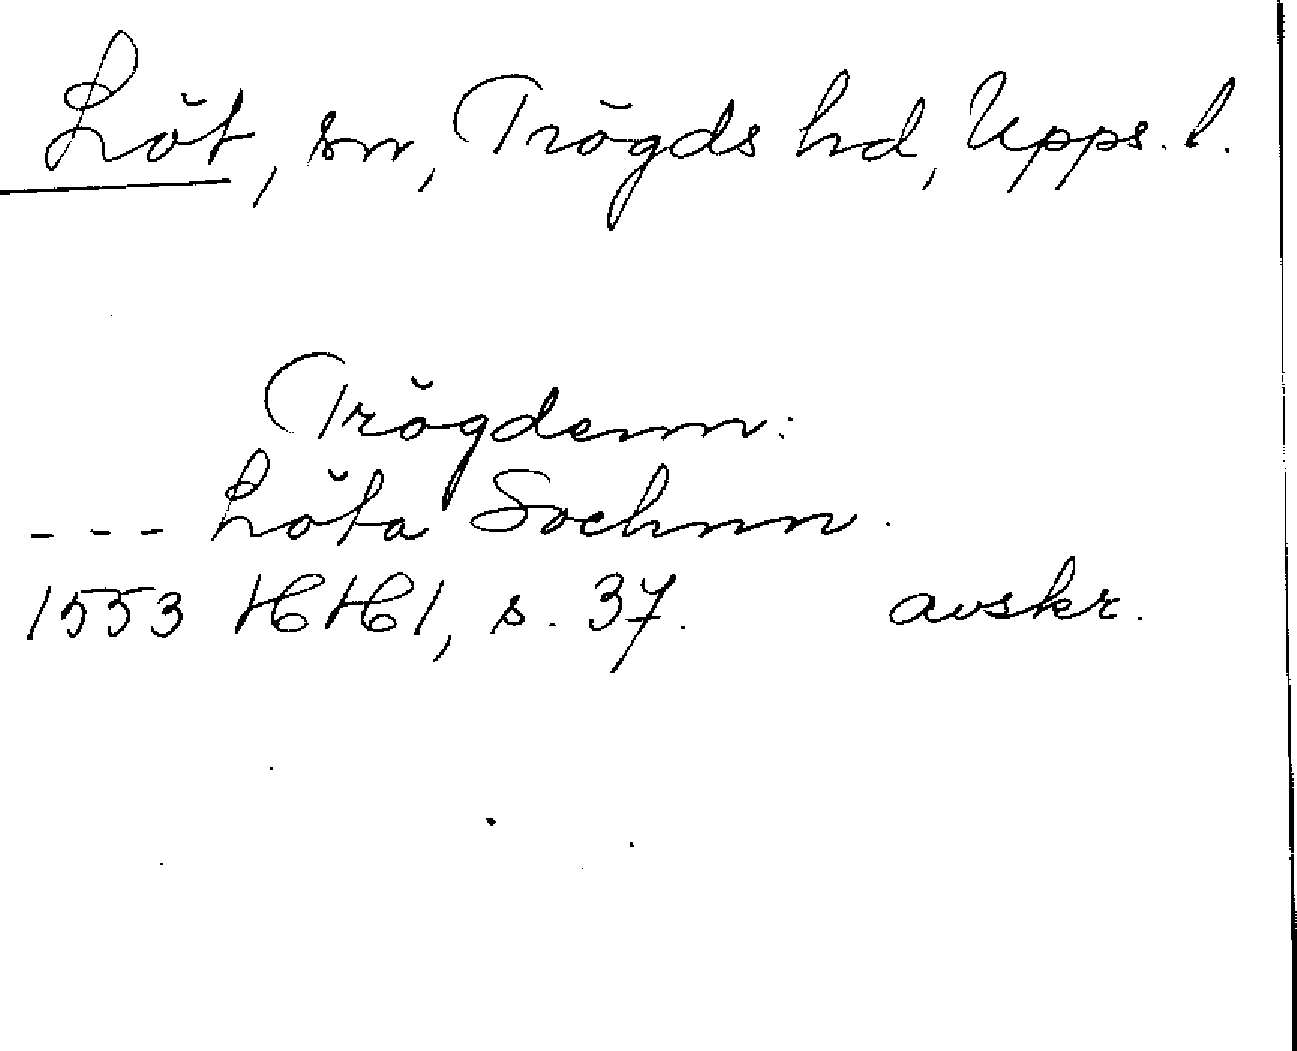 Löt, sn, Trögds hd, Upps. l.
Trögdenn:
--- Löta Sochnn.
1553 HH1, s. 37. avskr.